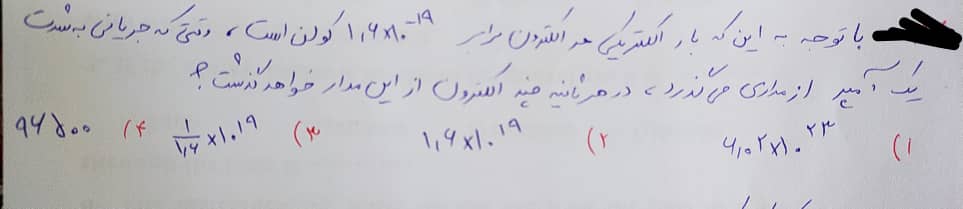 با توجه به این که بار الکتریکی هر الکترون برابر ۱,۶×۱۰^-۱۹ کولن است، وقتی که جریانی به شدت
یک آمپر از مداری می‌گذرد، در هر ثانیه چند الکترون از این مدار خواهد گذشت؟
۱) ۶,۰۲×۱۰^۲۳ ۲) ۱,۶×۱۰^۱۹ ۳) ۱/۱,۶ ×۱۰^۱۹ ۴) ۹۶۵۰۰